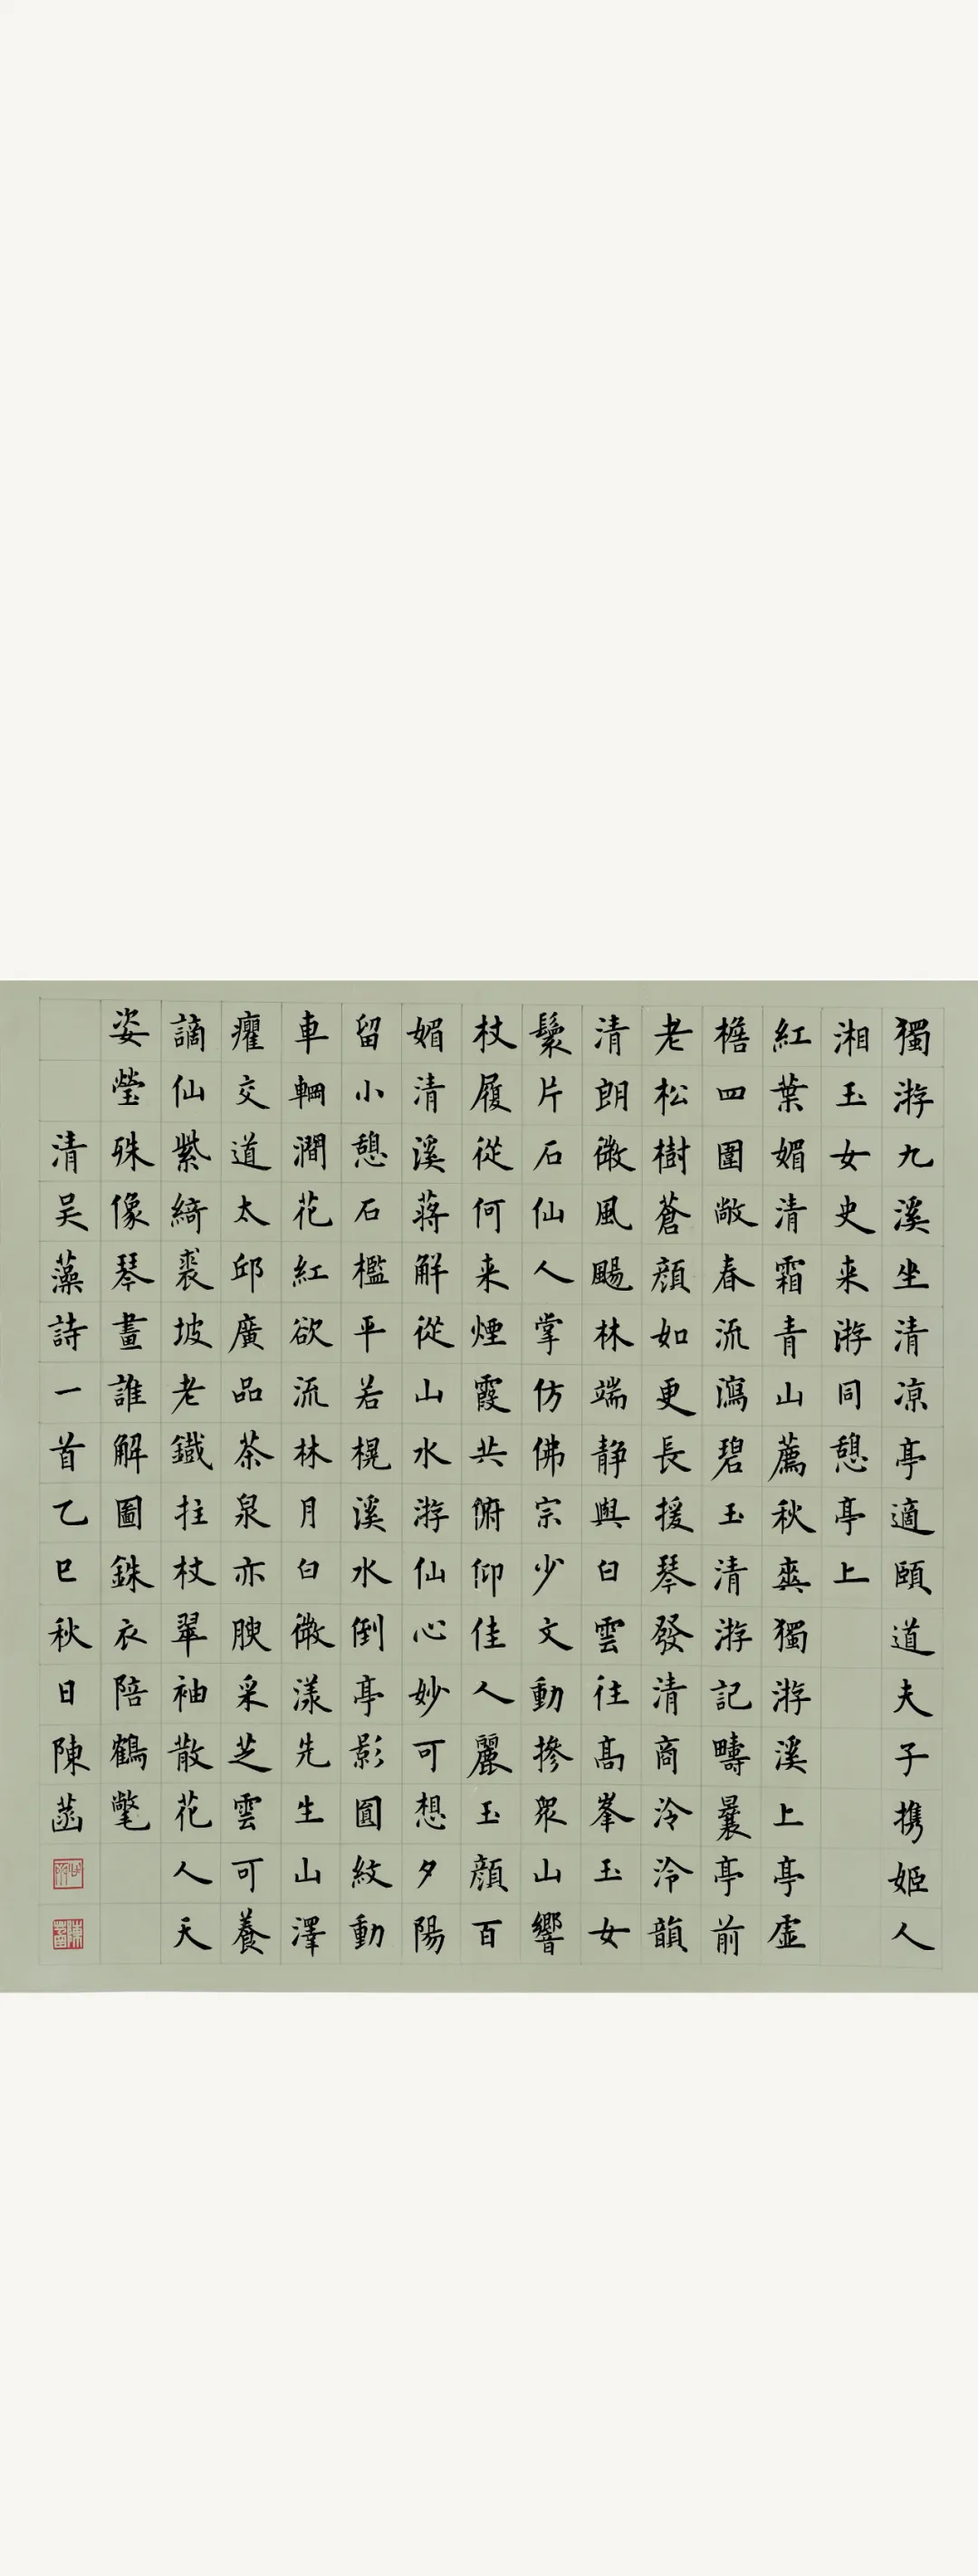 獨游九溪坐清涼亭適頤道夫子攜姬人
湘玉女史来游同憩亭上
紅葉媚清霜青山薦秋爽獨游溪上亭虛
檐四圍敞春流瀉碧玉清游記疇曩亭前
老松樹蒼顏如更長援琴發清商泠泠韻
清朗微風颺林端静與白雲往高峯玉女
鬟片石仙人掌仿佛宗少文動摻衆山響
杖履從何来煙霞共俯仰佳人麗玉顏百
媚清溪蔣解從山水游仙心妙可想夕陽
留小憩石檻平若榥溪水倒亭影圓紋動
車輞澗花紅欲流林月白微漾先生山澤
癯交道太邱廣品茶泉亦腴采芝雲可養
謫仙紫綺裘坡老鐵拄杖翠袖散花人天
姿瑩殊像琴畫誰解圖銖衣陪鶴氅
清吴藻詩一首乙巳秋日陳菡